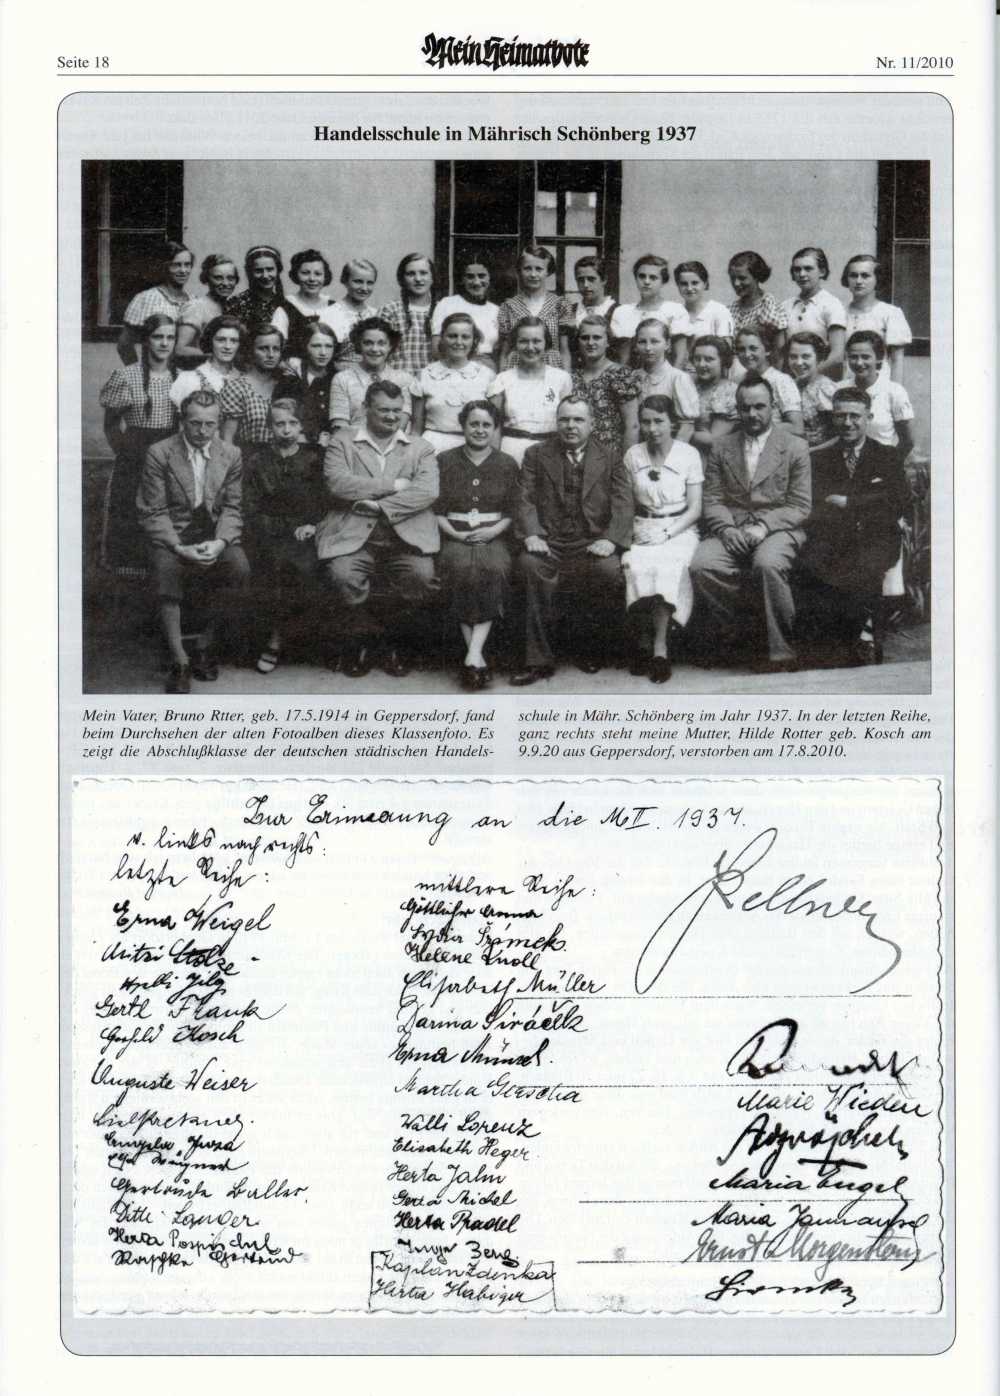 Seite 18
Mein Heimatbote
Nr. 11/2010
Handelsschule in Mährisch Schönberg 1937
Mein Vater, Bruno Rtter, geb. 17.5.1914 in Geppersdorf, fand
beim Durchsehen der alten Fotoalben dieses Klassenfoto. Es
zeigt die Abschlußklasse der deutschen städtischen Handels-
schule in Mähr. Schönberg im Jahr 1937. In der letzten Reihe,
ganz rechts steht meine Mutter, Hilde Rotter geb. Kosch am
9.9.20 aus Geppersdorf, verstorben am 17.8.2010.
Zur Erinnerung an die M II. 1937.
v. links nach rechts:
letzte Reihe:
Erna Weigel
Mitzi Stolze
Jilg
Gertl Frank
Kosch
Auguste Weiser
Gertrude
Ditti Langer
Herta Pospischil
Raschke Gertrud
mittlere Reihe:
Göttlicher Anna
Lydia Šzimek
Helene Knoll
Elisabeth Müller
Darina Siráček
Erna Münzel.
Martha
Walli Lorenz
Elisabeth Heger
Herta Jahn
Gerta Michel
Herta Pradel
Inge Berg.
Kaplan Zdenka
Herta Habiger
Kellner
Marie Wieden
Maria Engel
Maria
Ernst Morgenstern